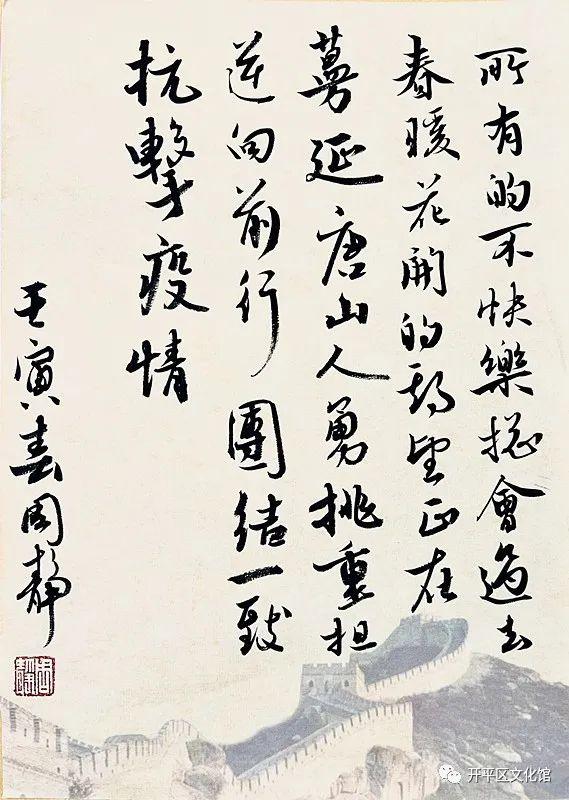 所有的不快樂總會過去
春暖花開的期望正在
蔓延唐山人勇挑重担
逆向前行團結一致
抗擊疫情
壬寅春周靜
开平区文化馆